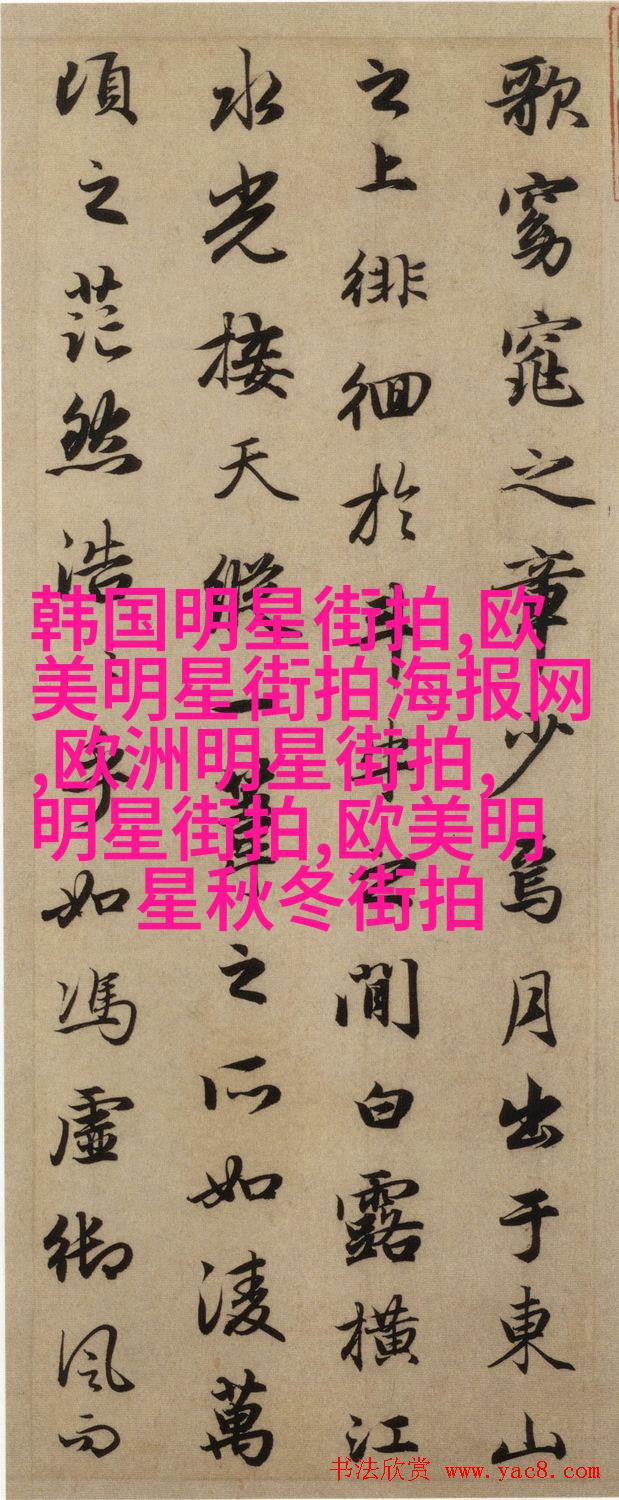 歌窈窕之章少焉月出于東山
之上徘徊於斗牛之間白露橫江
水光接天縱一葦之所如淩萬
頃之茫然浩〻乎如馮虛御風而
韩国明星街拍,欧
美明星街拍海报网
,欧洲明星街拍,
明星街拍,欧美明
星秋冬街拍
书法欣赏 www.yac8.com